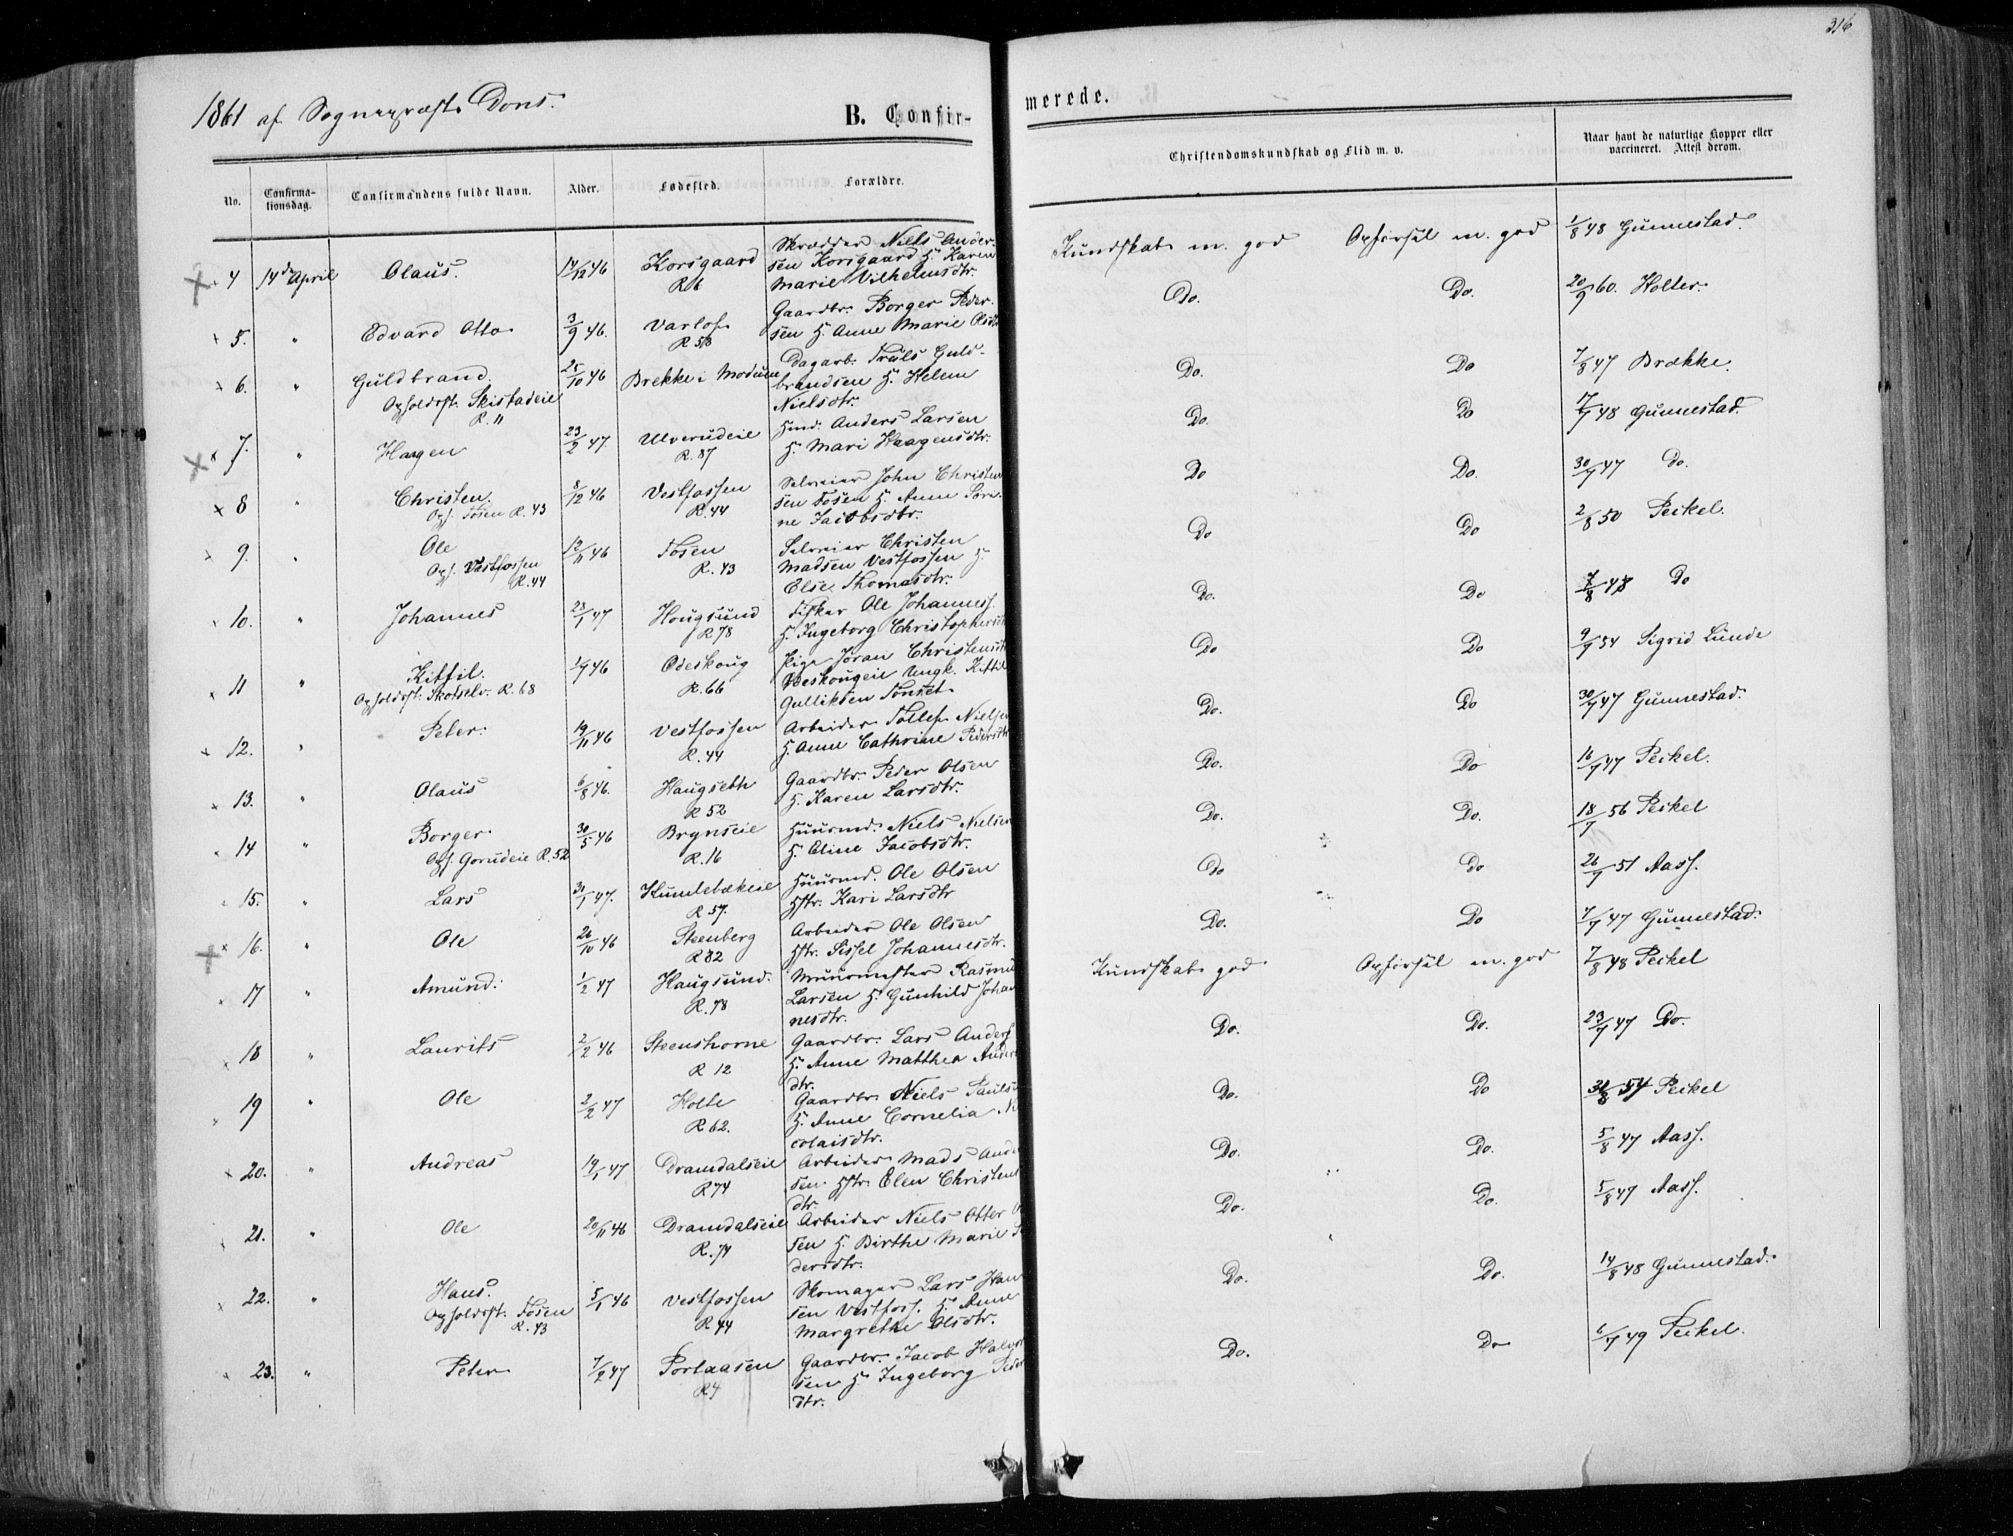 316
1861 af Sognepræst Dons.
B. Confir-
merede.
No.
Confirma-
tionsdag.
Confirmandens fulde Navn.
Alder.
Fødested.
Forældre.
Christendomskundskab og Flid m. v.
Naar havt de naturlige Kopper eller
vaccineret. Attest derom.
4 14de April Olaus. 14/12 46 Korsgaard R 6
Skrædder Niels Ander-
sen Korsgaard H. Karen
Marie Vilhelmsdtr.
Kundskab m. god Opførsel m. god 1/8 48 Gunnestad.
5. " Edvard Otto 3/9 46. Varlo R 58
Gaardbr. Borger Peder-
sen H. Anne Marie Olsdtr
Do. Do. 20/9 60. Holter.
6. " Guldbrand. 25/10 46 Brekke i Modum
Opholdsst. Skistadeie
R. 11
Dagarb. Truls Guld-
brandsen H. Helene
Nielsdtr.
Do. Do 7/8 47 Brække.
7. " Haagen 23/2 47 Ulverudeie R. 87
Huusmd. Anders Larsen
H. Mari Haagensdtr.
Do. Do 17/7 48 Gunnestad.
8 " Christen. 8/12 46 Vestfossen R. 44
Oph. Fosen R. 43
Selveier John Christen-
sen Fosen H. Anne Sore-
ne Jacobsdtr.
Do Do. 30/7 47 Do.
9. " Ole 12/11 46 Fosen R. 43
Oph. Vestfossen
R. 44
Selveier Christen
Madsen Vestfossen H.
Else Thomasdtr.
Do Do 2/8 50 Peckel.
10. " Johannes 23/1 47 Hougsund R 78
Fisker Ole Johanness.
H. Ingeborg Christophersdtr
Do. Do 7/8 48 Do
11 " Kittil. 1/9 46 Odeskoug R. 66
Opholdsst. Skotselv. R. 68
Pige Joran Christensdtr
Odeskougeie Ungk. Kittil
Gulliksen Tonset.
Do Do 9/9 54 Sigrid Lunde
12. " Peter. 19/11 46 Vestfossen R. 44
Arbeider Tollef Nielsen
H. Anne Cathrine Pedersdtr
Do. Do 30/7 47 Gunnestad.
13. " Olaus 6/8 46. Haugseth R 52
Gaardbr. Peder Olsen
H. Karen Larsdtr.
Do. Do 16/7 47 Peckel.
14 " Borger. 30/5 46 Brynseie R. 16
Oph. Gorudeie R. 52
Huusmd. Niels Nielsen
H. Eline Jacobsdtr.
Do. Do. 18/7 56 Peckel
15. " Lars 31/1 47. Humlebækeie R 57.
Huusmd. Ole Olsen
Hstr. Kari Larsdtr
Do Do 26/9 51 Aass.
16. " Ole 26/10 46 Steenberg R 82
Arbeider Ole Olsen
Hstr. Sissel Johannesdtr.
Do. Do 7/7 47 Gunnestad.
17 " Amund. 1/2 47 Haugsund. R. 78
Muurmester Rasmus
Larsen H. Gunhild Johan
nesdtr.
Kundskab god Opførsel m. god 7/8 48 Peckel
18 " Laurits 2/2 46 Steenshorne R 12
Gaardbr. Lars Anders
H. Anne Matthea Anders
dtr.
Do. Do. 23/7 47 Do.
19 " Ole 2/2 47 Holte R 62.
Gaardbr. Niels Paulse
H. Anne Cornelia Ni
colaisdtr.
Do. Do 54 Peckel
20. " Andreas 19/1 47 Dramdalseie R 74
Arbeider Mads Ander
sen. Hstr. Elen Christens
dtr.
Do. Do. 5/8 47 Aass.
21. " Ole 20/11 46 Dramdalseie R. 74
Arbeider Niels Otter
sen H. Birthe Marie Pe
dersdtr.
Do. Do. 5/8 47 Aass.
22. " Hans. 5/1 46 Vestfossen R 44
Opholdsst. Fosen
R. 43
Skomager Lars Han
sen Vestfoss. H. Anne
Margrethe Olsdtr.
Do. Do. 14/8 48 Gunnestad.
23. " Peter 7/2 47 Portaasen R 4
Gaardbr. Jacob Halvor
sen H. Ingeborg Peders
dtr.
Do. Do 6/7 49 Peckel.